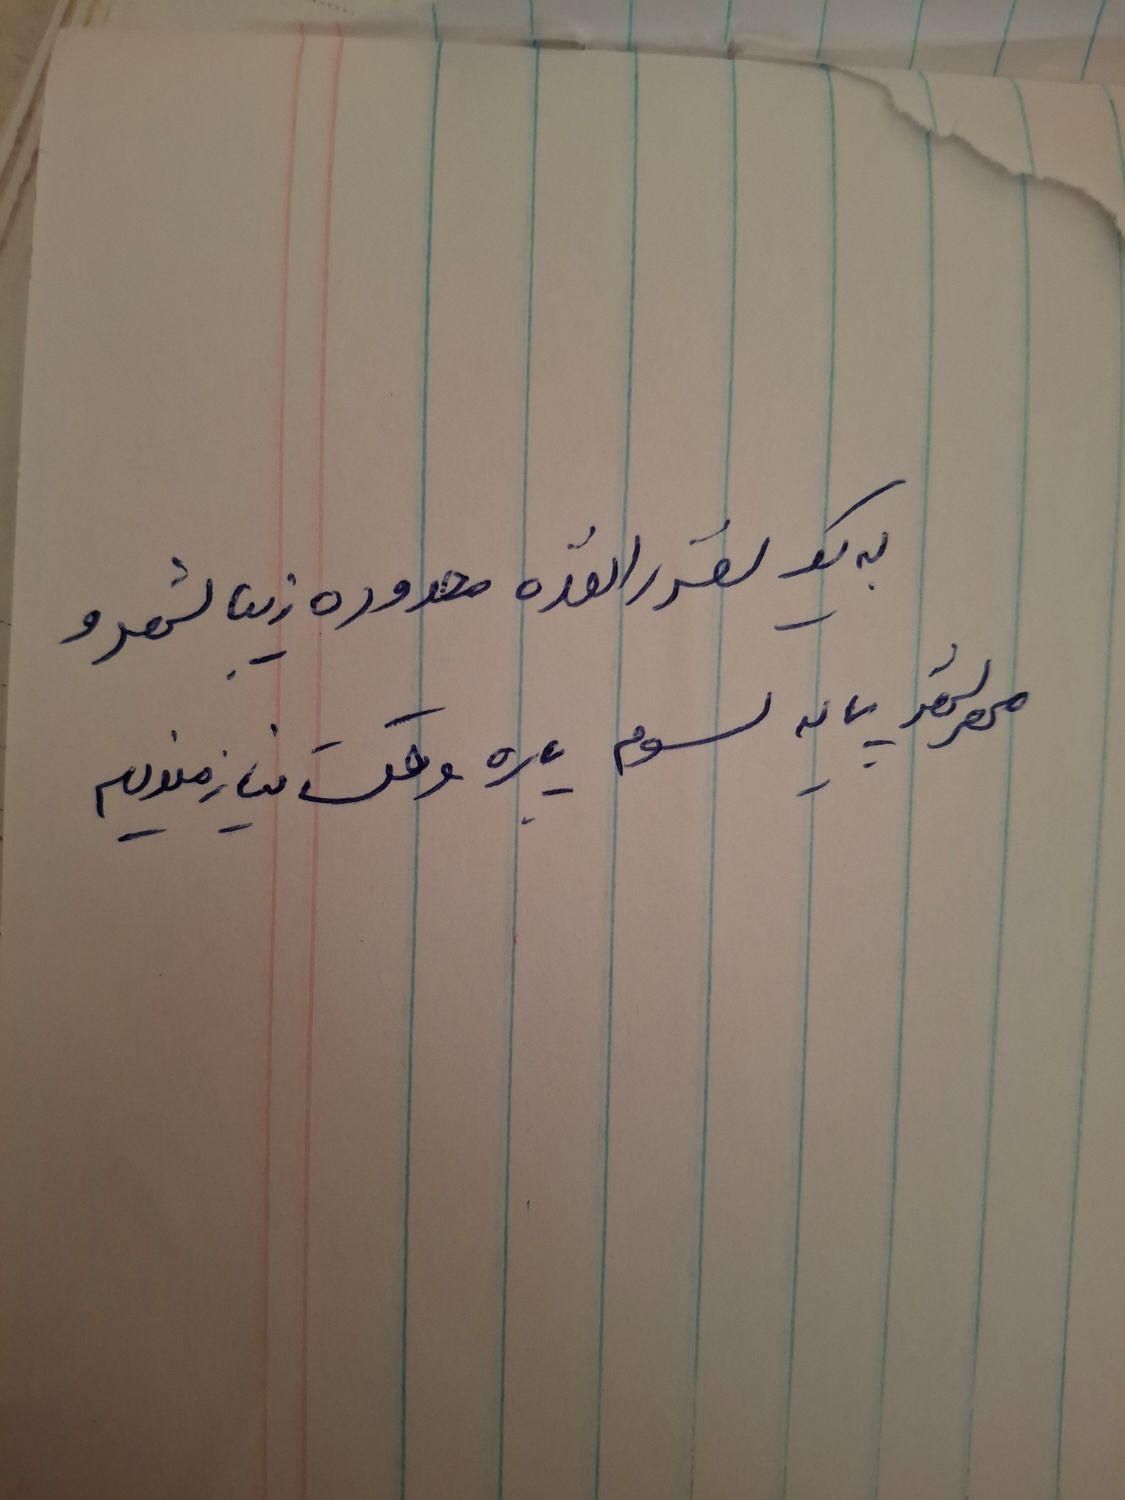 به یک نفر راننده محدوده زیباشهر و
مهرشهر پایه سوم پاره وقت نیازمندیم